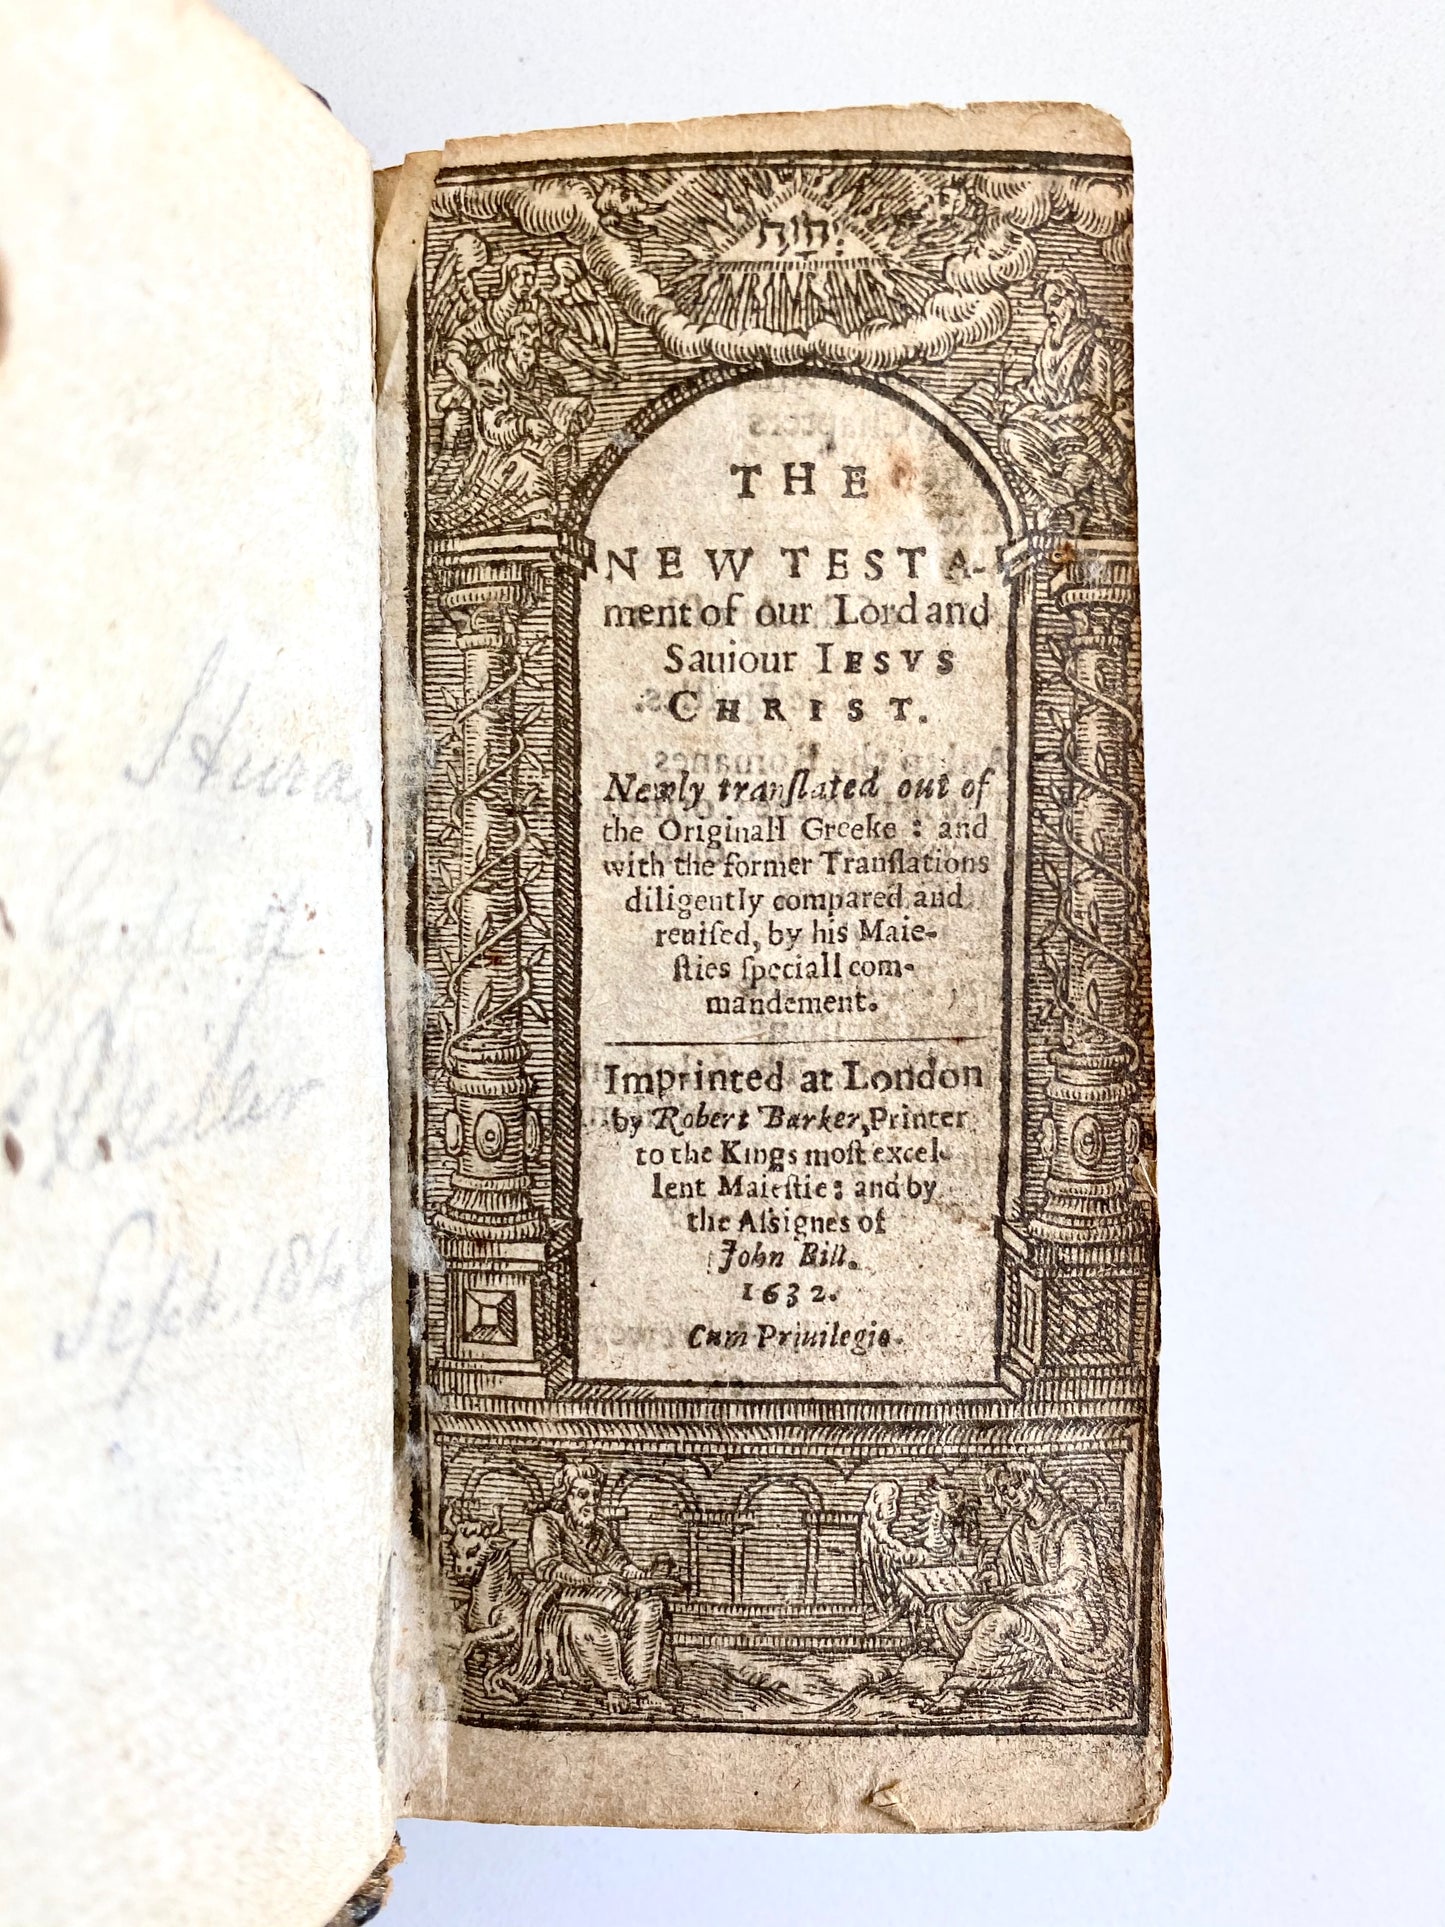 יְהֹוָה
THE
NEW TESTA-
ment of our Lord and
Sauiour IESVS
CHRIST.
Newly tranſlated out of
the Originall Greeke: and
with the former Tranſlations
diligently compared and
reuiſed, by his Maie-
ſties ſpeciall com-
mandement.
Imprinted at London
by Robert Barker, Printer
to the Kings moſt excel-
lent Maieſtie: and by
the Aſsignes of
John Bill.
1632.
Cum Priuilegio.
of
Sept. 184